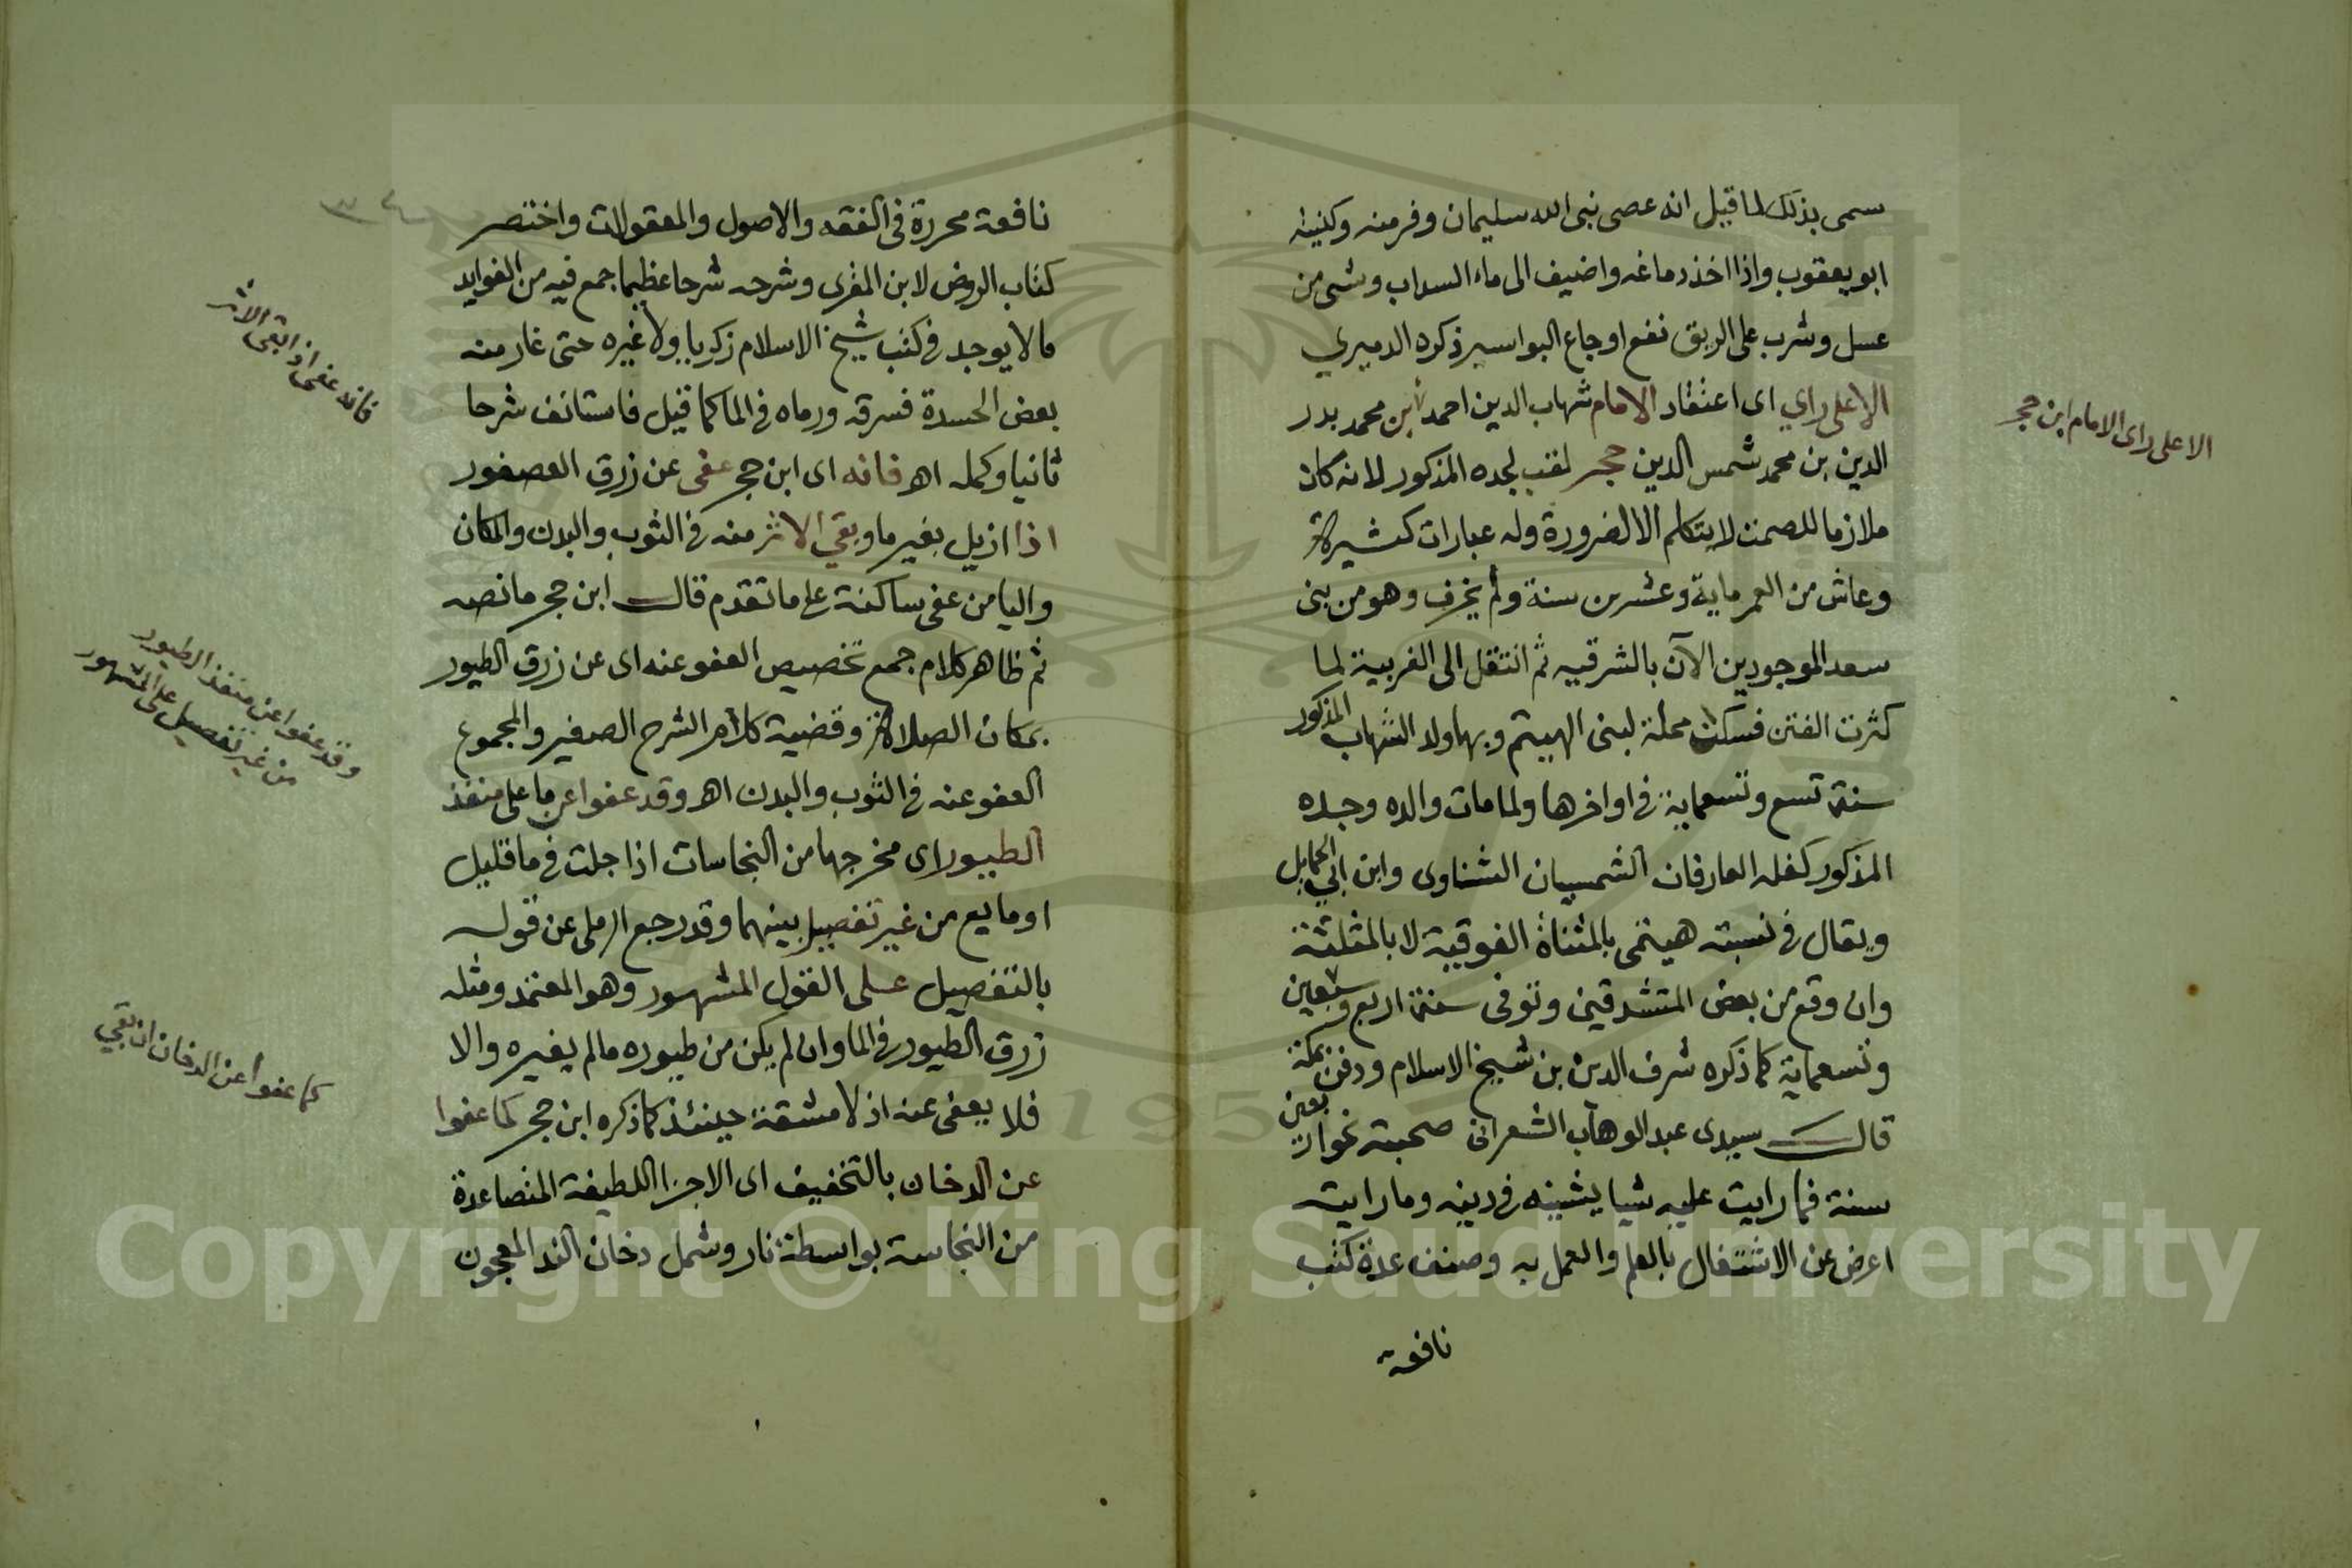 سمى بذلك لما قيل انه عصى نبى الله سليمان وفر منه وكنيته
ابو يعقوب واذا اخذ دماغه واضيف الى ماء السداب وشى من
عسل وشرب على الريق نفع اوجاع البواسير ذكره الدميري
الا على راي اى اعتقاد الامام شهاب الدين احمد ابن محمد بدر
الدين بن محمد شمس الدين حجر لقب لجده المذكور لانه كان
ملازما للصمت لا يتكلم الا لضرورة وله عبارات كثيرة
وعاش من العمر ماية وعشرين سنة ولم يخرف وهو من بنى
سعد الموجودين الآن بالشرقيه ثم انتقل الى الغربية لما
كثرت الفتن فسكن محلة لبنى الهيتم وبها ولد الشهاب المذكور
سنة تسع وتسعماية فى اواخرها ولما مات والده وجده
المذكور كفله العارفان الشمسيان الشناوى وابن ابي الحمايل
ويقال فى نسبته هيتمى بالمثناة الفوقية لا بالمثلثة
وان وقع من بعض المتشدقين وتوفى سنة اربع وسبعين
وتسعماية كما ذكره شرف الدين بن شيخ الاسلام ودفن بمكة
قال سيدى عبد الوهاب الشعرانى صحبته نحو اربعين
سنة فما رايت عليه شيا يشينه فى دينه وما رايته
اعرض عن الاشتغال بالعلم والعمل به وصنف عدة كتب
نافعة
الا على راى الامام ابن حجر
نافعة محررة فى الفقه والاصول والمعقولات واختصر
كتاب الروض لابن المقرى وشرحه شرحا عظيما جمع فيه من الفوايد
ما لا يوجد فى كتب شيخ الاسلام زكريا ولا غيره حتى غار منه
بعض الحسدة فسرقه ورماه فى الما كما قيل فاستانف شرحا
ثانيا وكمله اه فانه اى ابن حجر عفى عن زرق العصفور
اذا ازيل بغير ما وبقي الاثر منه فى الثوب والبدن والمكان
واليا من عفى ساكنة على ما تقدم قال ابن حجر ما نصه
ثم ظاهر كلام جمع تخصيص العفو عنه اى عن زرق الطيور
بمكان الصلاة وقضية كلام الشرح الصغير والمجموع
العفو عنه فى الثوب والبدن اه وقد عفوا عن ما على منفذ
الطيور اى مخرجها من النجاسات اذا جلت فى ما قليل
او مايع من غير تفصيل بينهما وقد رجع الرملى عن قوله
بالتفصيل على القول المشهور وهو المعتمد ومثله
زرق الطيور فى الما وان لم يكن من طيوره ما لم يغيره والا
فلا يعفى عنه اذ لا مشقة حينئذ كما ذكره ابن حجر كما عفوا
عن الدخان بالتخفيف اى الاجزا اللطيفة المتصاعدة
من النجاسة بواسطة نار وشمل دخان الند المعجون
فانه عفى اذ ابقى الاثر
وقد عفوا عن منفذ الطيور
من غير تفصيل على المشهور
كما عفوا عن الدخان ان بقي
Copyright © King Saud University
195